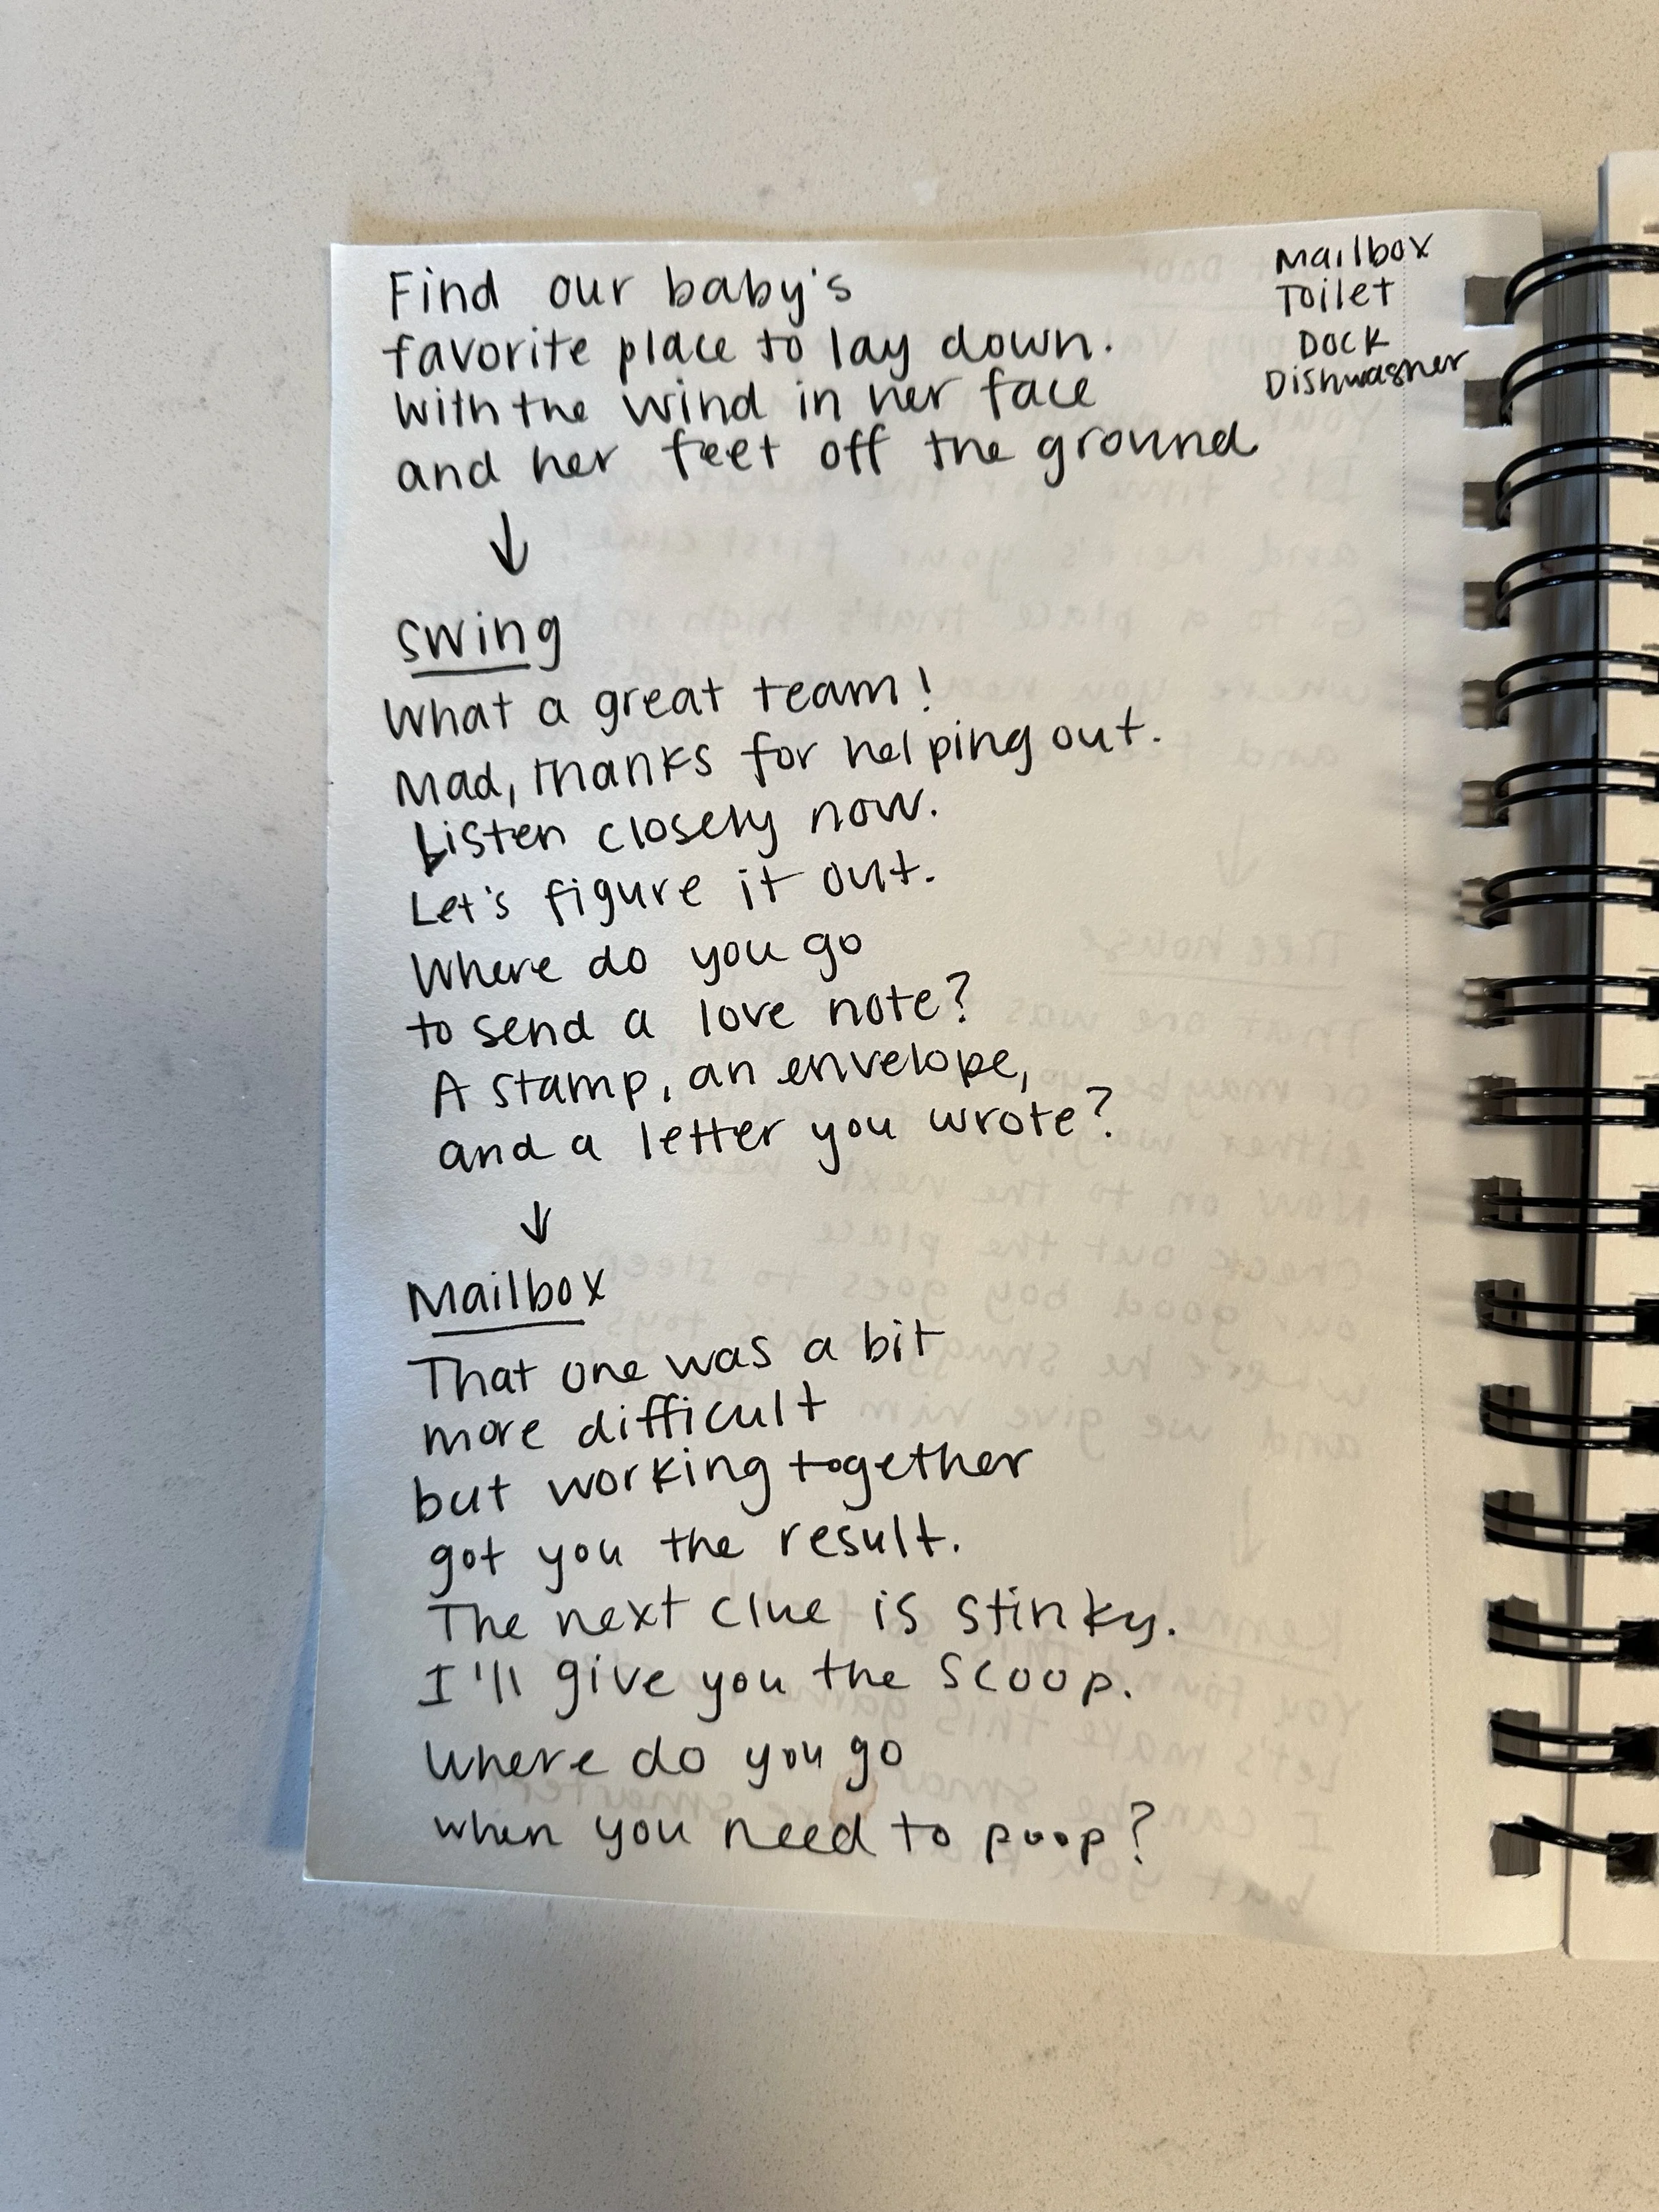 Find our baby's
favorite place to lay down.
With the wind in her face
and her feet off the ground
Mailbox
Toilet
Dock
Dishwasher
↓
Swing
What a great team!
Mad, thanks for helping out.
Listen closely now.
Let's figure it out.
Where do you go
to send a love note?
A stamp, an envelope,
and a letter you wrote?
↓
Mailbox
That one was a bit
more difficult
but working together
got you the result.
The next clue is stinky.
I'll give you the scoop.
Where do you go
when you need to poop?